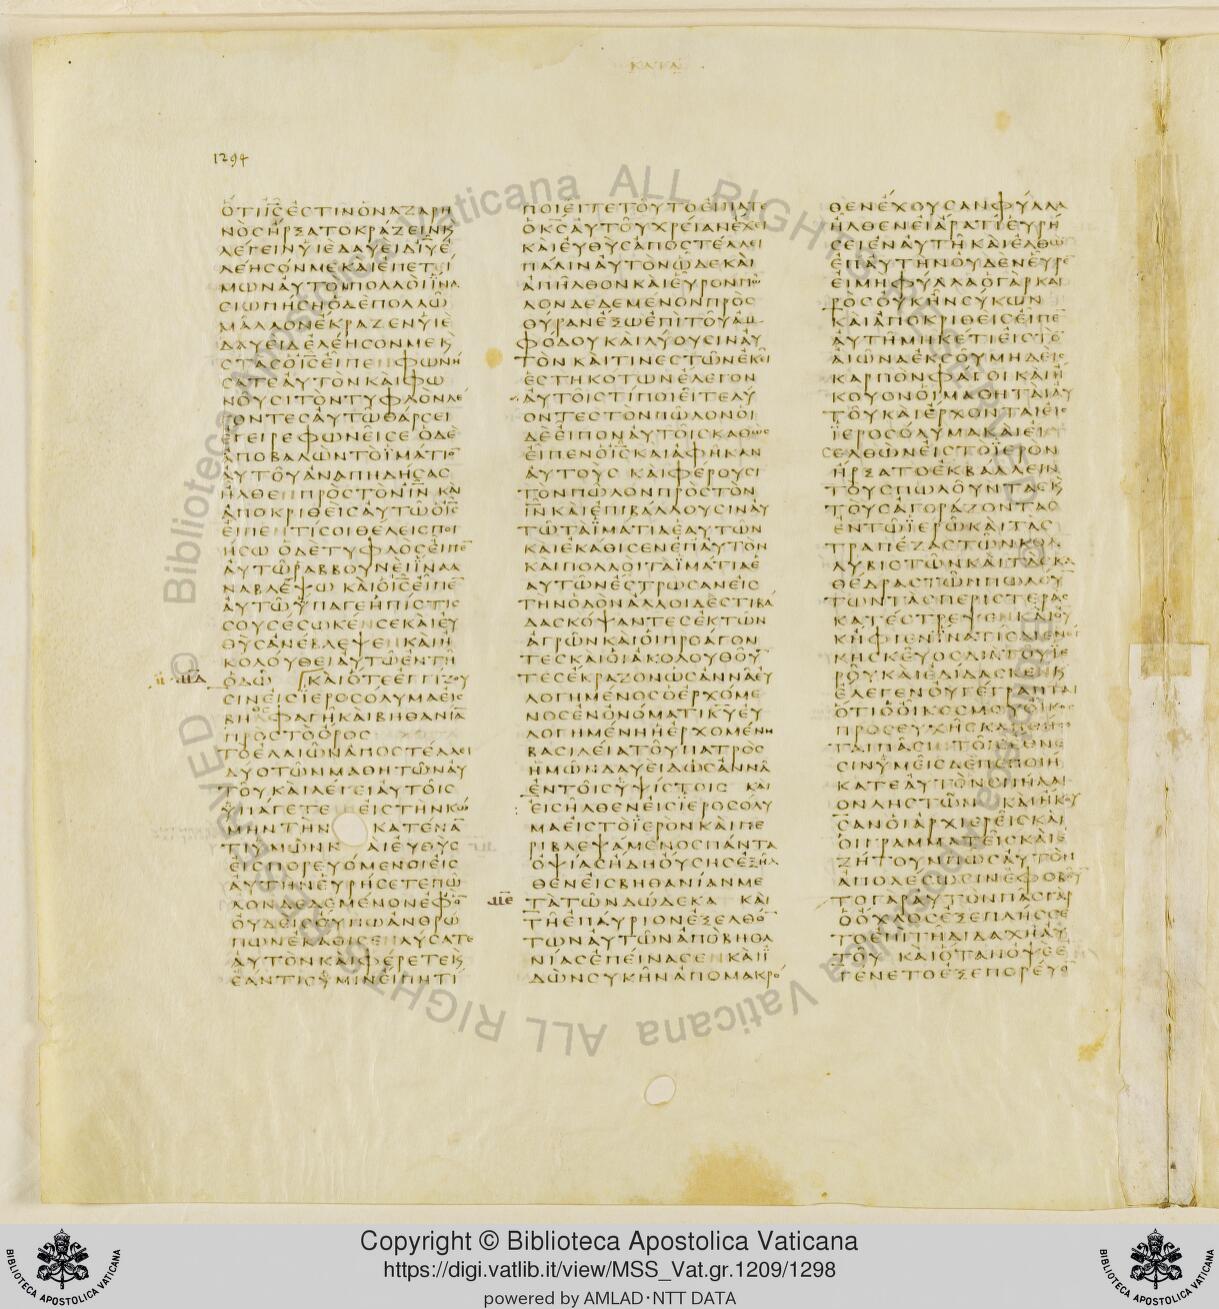 ΚΑΤΑ
1294
ΟΤΙ ΙϹ ΕϹΤΙΝ Ο ΝΑΖΑΡΗ
ΝΟϹ ΗΡΞΑΤΟ ΚΡΑΖΕΙΝ Κ
ΛΕΓΕΙΝ ΥΙΕ ΔΑΥΕΙΔ ΙΥ Ε
ΛΕΗϹΟΝ ΜΕ ΚΑΙ ΕΠΕΤΙ
ΜΩΝ ΑΥΤΩ ΠΟΛΛΟΙ ΙΝΑ
ϹΙΩΠΗϹΗ Ο ΔΕ ΠΟΛΛΩ
ΜΑΛΛΟΝ ΕΚΡΑΖΕΝ ΥΙΕ
ΔΑΥΕΙΔ ΕΛΕΗϹΟΝ ΜΕ Κ
ϹΤΑϹ Ο ΙϹ ΕΙΠΕΝ ΦΩΝΗ
ϹΑΤΕ ΑΥΤΟΝ ΚΑΙ ΦΩ
ΝΟΥϹΙ ΤΟΝ ΤΥΦΛΟΝ ΛΕ
ΓΟΝΤΕϹ ΑΥΤΩ ΘΑΡϹΕΙ
ΕΓΕΙΡΕ ΦΩΝΕΙ ϹΕ Ο ΔΕ
ΑΠΟΒΑΛΩΝ ΤΟ ΙΜΑΤΙΟ
ΑΥΤΟΥ ΑΝΑΠΗΔΗϹΑϹ
ΗΛΘΕΝ ΠΡΟϹ ΤΟΝ ΙΝ ΚΑΙ
ΑΠΟΚΡΙΘΕΙϹ ΑΥΤΩ Ο ΙϹ
ΕΙΠΕΝ ΤΙ ϹΟΙ ΘΕΛΕΙϹ ΠΟΙ
ΗϹΩ Ο ΔΕ ΤΥΦΛΟϹ ΕΙΠΕ
ΑΥΤΩ ΡΑΒΒΟΥΝΕΙ ΙΝΑ Α
ΝΑΒΛΕΨΩ ΚΑΙ Ο ΙϹ ΕΙΠΕ
ΑΥΤΩ ΥΠΑΓΕ Η ΠΙϹΤΙϹ
ϹΟΥ ϹΕϹΩΚΕΝ ϹΕ ΚΑΙ ΕΥ
ΘΥϹ ΑΝΕΒΛΕΨΕΝ ΚΑΙ Η
ΚΟΛΟΥΘΕΙ ΑΥΤΩ ΕΝ ΤΗ
ΟΔΩ ΚΑΙ ΟΤΕ ΕΓΓΙΖΟΥ
ϹΙΝ ΕΙϹ ΙΕΡΟϹΟΛΥΜΑ ΕΙϹ
ΒΗΘϹΦΑΓΗ ΚΑΙ ΒΗΘΑΝΙΑ
ΠΡΟϹ ΤΟ ΟΡΟϹ
ΤΟ ΕΛΑΙΩΝ ΑΠΟϹΤΕΛΛΕΙ
ΔΥΟ ΤΩΝ ΜΑΘΗΤΩΝ ΑΥ
ΤΟΥ ΚΑΙ ΛΕΓΕΙ ΑΥΤΟΙϹ
ΥΠΑΓΕΤΕ ΕΙϹ ΤΗΝ ΚΩ
ΜΗΝ ΤΗΝ ΚΑΤΕΝΑ
ΤΙ ΥΜΩΝ Κ ΑΙ ΕΥΘΥϹ
ΕΙϹΠΟΡΕΥΟΜΕΝΟΙ ΕΙϹ
ΑΥΤΗΝ ΕΥΡΗϹΕΤΕ ΠΩ
ΛΟΝ ΔΕΔΕΜΕΝΟΝ ΕΦ Ο
ΟΥΔΕΙϹ ΟΥΠΩ ΑΝΘΡΩ
ΠΩΝ ΕΚΑΘΙϹΕΝ ΛΥϹΑΤΕ
ΑΥΤΟΝ ΚΑΙ ΦΕΡΕΤΕ Κ
ΕΑΝ ΤΙϹ ΥΜΙΝ ΕΙΠΗ ΤΙ
ΠΟΙΕΙΤΕ ΤΟΥΤΟ ΕΙΠΑΤΕ
Ο ΚϹ ΑΥΤΟΥ ΧΡΕΙΑΝ ΕΧΕΙ
ΚΑΙ ΕΥΘΥϹ ΑΠΟϹΤΕΛΛΕΙ
ΠΑΛΙΝ ΑΥΤΟΝ ΩΔΕ ΚΑΙ
ΑΠΗΛΘΟΝ ΚΑΙ ΕΥΡΟΝ ΠΩ
ΛΟΝ ΔΕΔΕΜΕΝΟΝ ΠΡΟϹ
ΘΥΡΑΝ ΕΞΩ ΕΠΙ ΤΟΥ ΑΜ
ΦΟΔΟΥ ΚΑΙ ΛΥΟΥϹΙΝ ΑΥ
ΤΟΝ ΚΑΙ ΤΙΝΕϹ ΤΩΝ ΕΚΕΙ
ΕϹΤΗΚΟΤΩΝ ΕΛΕΓΟΝ
ΑΥΤΟΙϹ ΤΙ ΠΟΙΕΙΤΕ ΛΥ
ΟΝΤΕϹ ΤΟΝ ΠΩΛΟΝ ΟΙ
ΔΕ ΕΙΠΟΝ ΑΥΤΟΙϹ ΚΑΘΩϹ
ΕΙΠΕΝ Ο ΙϹ ΚΑΙ ΑΦΗΚΑΝ
ΑΥΤΟΥϹ ΚΑΙ ΦΕΡΟΥϹΙ
ΤΟΝ ΠΩΛΟΝ ΠΡΟϹ ΤΟΝ
ΙΝ ΚΑΙ ΕΠΙΒΑΛΛΟΥϹΙΝ ΑΥ
ΤΩ ΤΑ ΙΜΑΤΙΑ ΕΑΥΤΩΝ
ΚΑΙ ΕΚΑΘΙϹΕΝ ΕΠ ΑΥΤΟΝ
ΚΑΙ ΠΟΛΛΟΙ ΤΑ ΙΜΑΤΙΑ Ε
ΑΥΤΩΝ ΕϹΤΡΩϹΑΝ ΕΙϹ
ΤΗΝ ΟΔΟΝ ΑΛΛΟΙ ΔΕ ϹΤΙΒΑ
ΔΑϹ ΚΟΨΑΝΤΕϹ ΕΚ ΤΩΝ
ΑΓΡΩΝ ΚΑΙ ΟΙ ΠΡΟΑΓΟΝ
ΤΕϹ ΚΑΙ ΟΙ ΑΚΟΛΟΥΘΟΥ
ΤΕϹ ΕΚΡΑΖΟΝ ΩϹΑΝΝΑ ΕΥ
ΛΟΓΗΜΕΝΟϹ Ο ΕΡΧΟΜΕ
ΝΟϹ ΕΝ ΟΝΟΜΑΤΙ ΚΥ ΕΥ
ΛΟΓΗΜΕΝΗ Η ΕΡΧΟΜΕΝΗ
ΒΑϹΙΛΕΙΑ ΤΟΥ ΠΑΤΡΟϹ
ΗΜΩΝ ΔΑΥΕΙΔ ΩϹΑΝΝΑ
ΕΝ ΤΟΙϹ ΥΨΙϹΤΟΙϹ ΚΑΙ
ΕΙϹΗΛΘΕΝ ΕΙϹ ΙΕΡΟϹΟΛΥ
ΜΑ ΕΙϹ ΤΟ ΙΕΡΟΝ ΚΑΙ ΠΕ
ΡΙΒΛΕΨΑΜΕΝΟϹ ΠΑΝΤΑ
ΟΨΙΑϹ ΗΔΗ ΟΥϹΗϹ ΕΞΗΛ
ΘΕΝ ΕΙϹ ΒΗΘΑΝΙΑΝ ΜΕ
ΤΑ ΤΩΝ ΔΩΔΕΚΑ ΚΑΙ
ΤΗ ΕΠΑΥΡΙΟΝ ΕΞΕΛΘΟ
ΤΩΝ ΑΥΤΩΝ ΑΠΟ ΒΗΘΑ
ΝΙΑϹ ΕΠΕΙΝΑϹΕΝ ΚΑΙ Ι
ΔΩΝ ϹΥΚΗΝ ΑΠΟ ΜΑΚΡΟ
ΘΕΝ ΕΧΟΥϹΑΝ ΦΥΛΛΑ
ΗΛΘΕΝ ΕΙ ΑΡΑ ΤΙ ΕΥΡΗ
ϹΕΙ ΕΝ ΑΥΤΗ ΚΑΙ ΕΛΘΩ
ΕΠ ΑΥΤΗΝ ΟΥΔΕΝ ΕΥΡΕ
ΕΙ ΜΗ ΦΥΛΛΑ Ο ΓΑΡ ΚΑΙ
ΡΟϹ ΟΥΚ ΗΝ ϹΥΚΩΝ
ΚΑΙ ΑΠΟΚΡΙΘΕΙϹ ΕΙΠΕ
ΑΥΤΗ ΜΗΚΕΤΙ ΕΙϹ ΤΟ
ΑΙΩΝΑ ΕΚ ϹΟΥ ΜΗΔΕΙϹ
ΚΑΡΠΟΝ ΦΑΓΟΙ ΚΑΙ Η
ΚΟΥΟΝ ΟΙ ΜΑΘΗΤΑΙ ΑΥ
ΤΟΥ ΚΑΙ ΕΡΧΟΝΤΑΙ ΕΙϹ
ΙΕΡΟϹΟΛΥΜΑ ΚΑΙ ΕΙ
ϹΕΛΘΩΝ ΕΙϹ ΤΟ ΙΕΡΟΝ
ΗΡΞΑΤΟ ΕΚΒΑΛΛΕΙΝ
ΤΟΥϹ ΠΩΛΟΥΝΤΑϹ Κ
ΤΟΥϹ ΑΓΟΡΑΖΟΝΤΑϹ
ΕΝ ΤΩ ΙΕΡΩ ΚΑΙ ΤΑϹ
ΤΡΑΠΕΖΑϹ ΤΩΝ ΚΟΛ
ΛΥΒΙϹΤΩΝ ΚΑΙ ΤΑϹ ΚΑ
ΘΕΔΡΑϹ ΤΩΝ ΠΩΛΟΥ
ΤΩΝ ΤΑϹ ΠΕΡΙϹΤΕΡΑϹ
ΚΑΤΕϹΤΡΕΨΕΝ ΚΑΙ ΟΥ
Κ ΗΦΙΕΝ ΙΝΑ ΤΙϹ ΔΙΕΝΕ
ΚΗ ϹΚΕΥΟϹ ΔΙΑ ΤΟΥ ΙΕ
ΡΟΥ ΚΑΙ ΕΔΙΔΑϹΚΕΝ Κ
ΕΛΕΓΕΝ ΟΥ ΓΕΓΡΑΠΤΑΙ
ΟΤΙ Ο ΟΙΚΟϹ ΜΟΥ ΟΙΚΟϹ
ΠΡΟϹΕΥΧΗϹ ΚΛΗΘΗϹΕ
ΤΑΙ ΠΑϹΙΝ ΤΟΙϹ ΕΘΝΕ
ϹΙΝ ΥΜΕΙϹ ΔΕ ΠΕΠΟΙΗ
ΚΑΤΕ ΑΥΤΟΝ ϹΠΗΛΑΙ
ΟΝ ΛΗϹΤΩΝ ΚΑΙ ΗΚΟΥ
ϹΑΝ ΟΙ ΑΡΧΙΕΡΕΙϹ ΚΑΙ
ΟΙ ΓΡΑΜΜΑΤΕΙϹ ΚΑΙ Ε
ΖΗΤΟΥΝ ΠΩϹ ΑΥΤΟΝ
ΑΠΟΛΕϹΩϹΙΝ ΕΦΟΒΟΥ
ΤΟ ΓΑΡ ΑΥΤΟΝ ΠΑϹ ΓΑΡ
Ο ΟΧΛΟϹ ΕΞΕΠΛΗϹϹΕ
ΤΟ ΕΠΙ ΤΗ ΔΙΔΑΧΗ ΑΥ
ΤΟΥ ΚΑΙ ΟΤΑΝ ΟΨΕ Ε
ΓΕΝΕΤΟ ΕΞΕΠΟΡΕΥΟ
Copyright © Biblioteca Apostolica Vaticana
https://digi.vatlib.it/view/MSS_Vat.gr.1209/1298
powered by AMLAD·NTT DATA